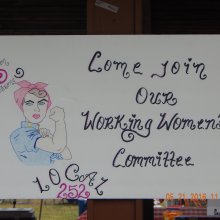 Come join
Our
Working Women's
Committee
LOCAL
252
05 21 2016 11